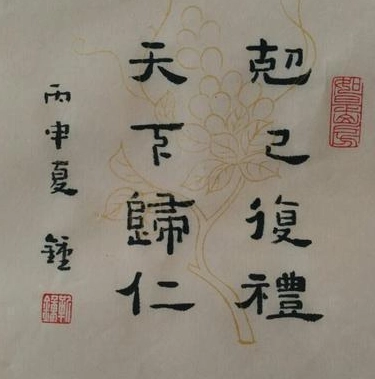 剋己復禮
天下歸仁
丙申夏 鍾